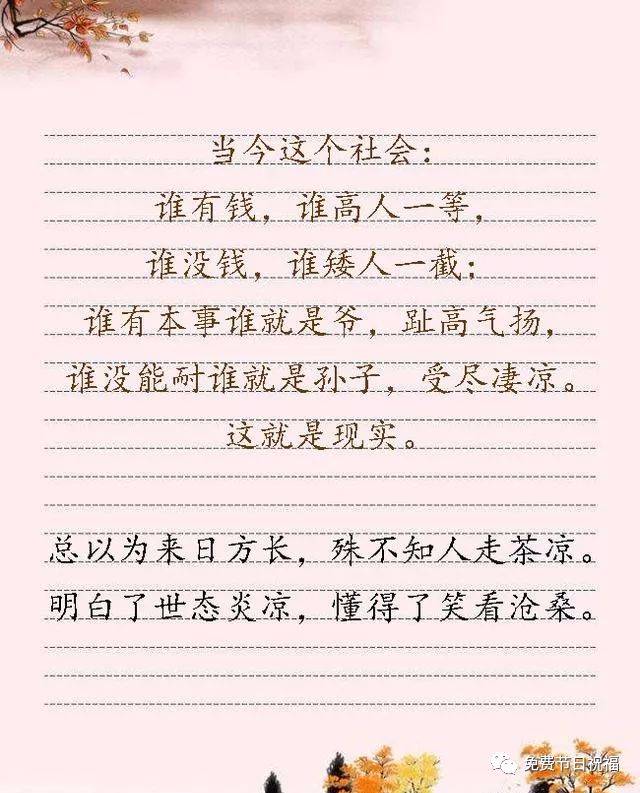 当今这个社会：
谁有钱，谁高人一等，
谁没钱，谁矮人一截；
谁有本事谁就是爷，趾高气扬，
谁没能耐谁就是孙子，受尽凄凉。
这就是现实。
总以为来日方长，殊不知人走茶凉。
明白了世态炎凉，懂得了笑看沧桑。
免费节日祝福